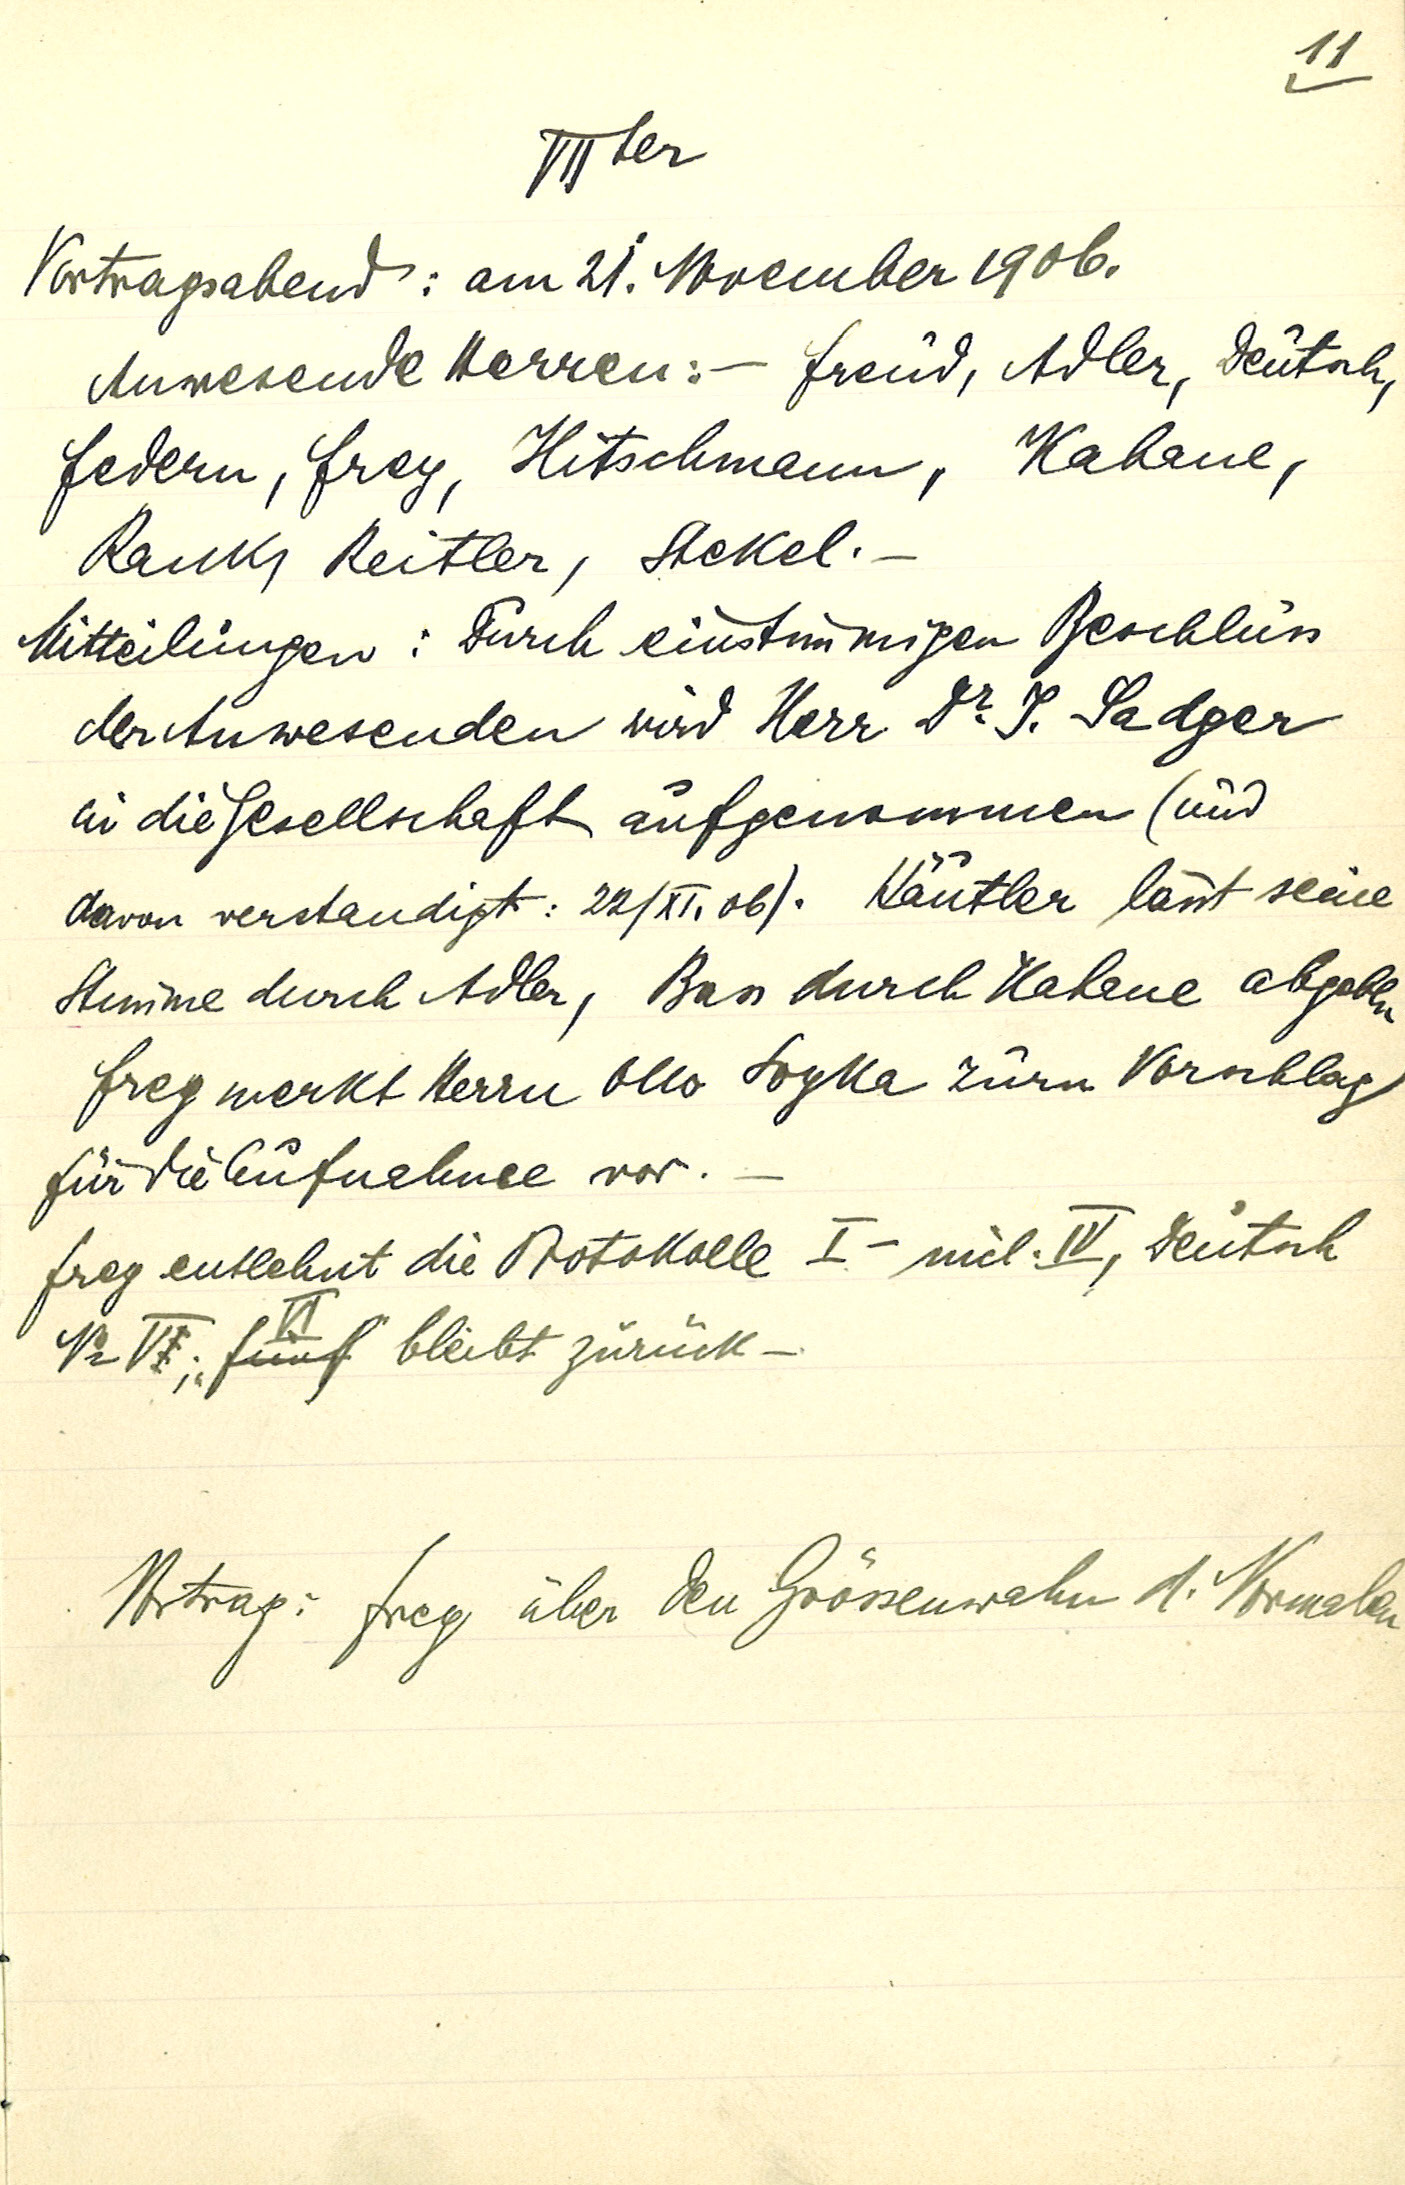 11
VIIter
Vortragsabend: am 21. November 1906.
Anwesende Herren:— Freud, Adler, Deutsch,
Federn, Frey, Hitschmann, Kahane,
Rank, Reitler, Stekel.—
Mitteilungen: Durch einstimmigen Beschluss
der Anwesenden wird Herr Dr. J. Sadger
in die Gesellschaft aufgenommen (und
davon verständigt: 22/XI. 06). Häutler lässt seine
Stimme durch Adler, Bass durch Kahane abgeben
Frey merkt Herrn Otto Soyka zum Vorschlag
für die Aufnahme vor. —
Frey entlehnt die Protokolle I – incl. IV, Deutsch
No V; fünf VI bleibt zurück —
Vortrag: Frey über den Grössenwahn d. Normalen